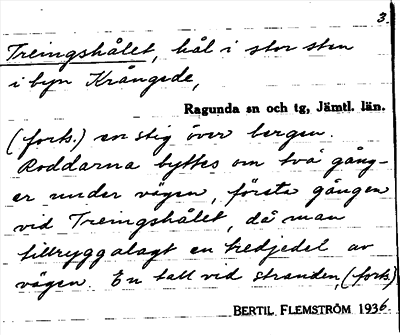 3.
Treingshålet, hål i stor sten
i byn Krångede,
Ragunda sn och tg, Jämtl. län.
(forts.) en stig över bergen.
Roddarna byttes om två gång-
er under vägen, första gången
vid Treingshålet, då man
tillryggalagt en tredjedel av
vägen. En tall vid stranden, (forts.)
BERTIL FLEMSTRÖM 1936.